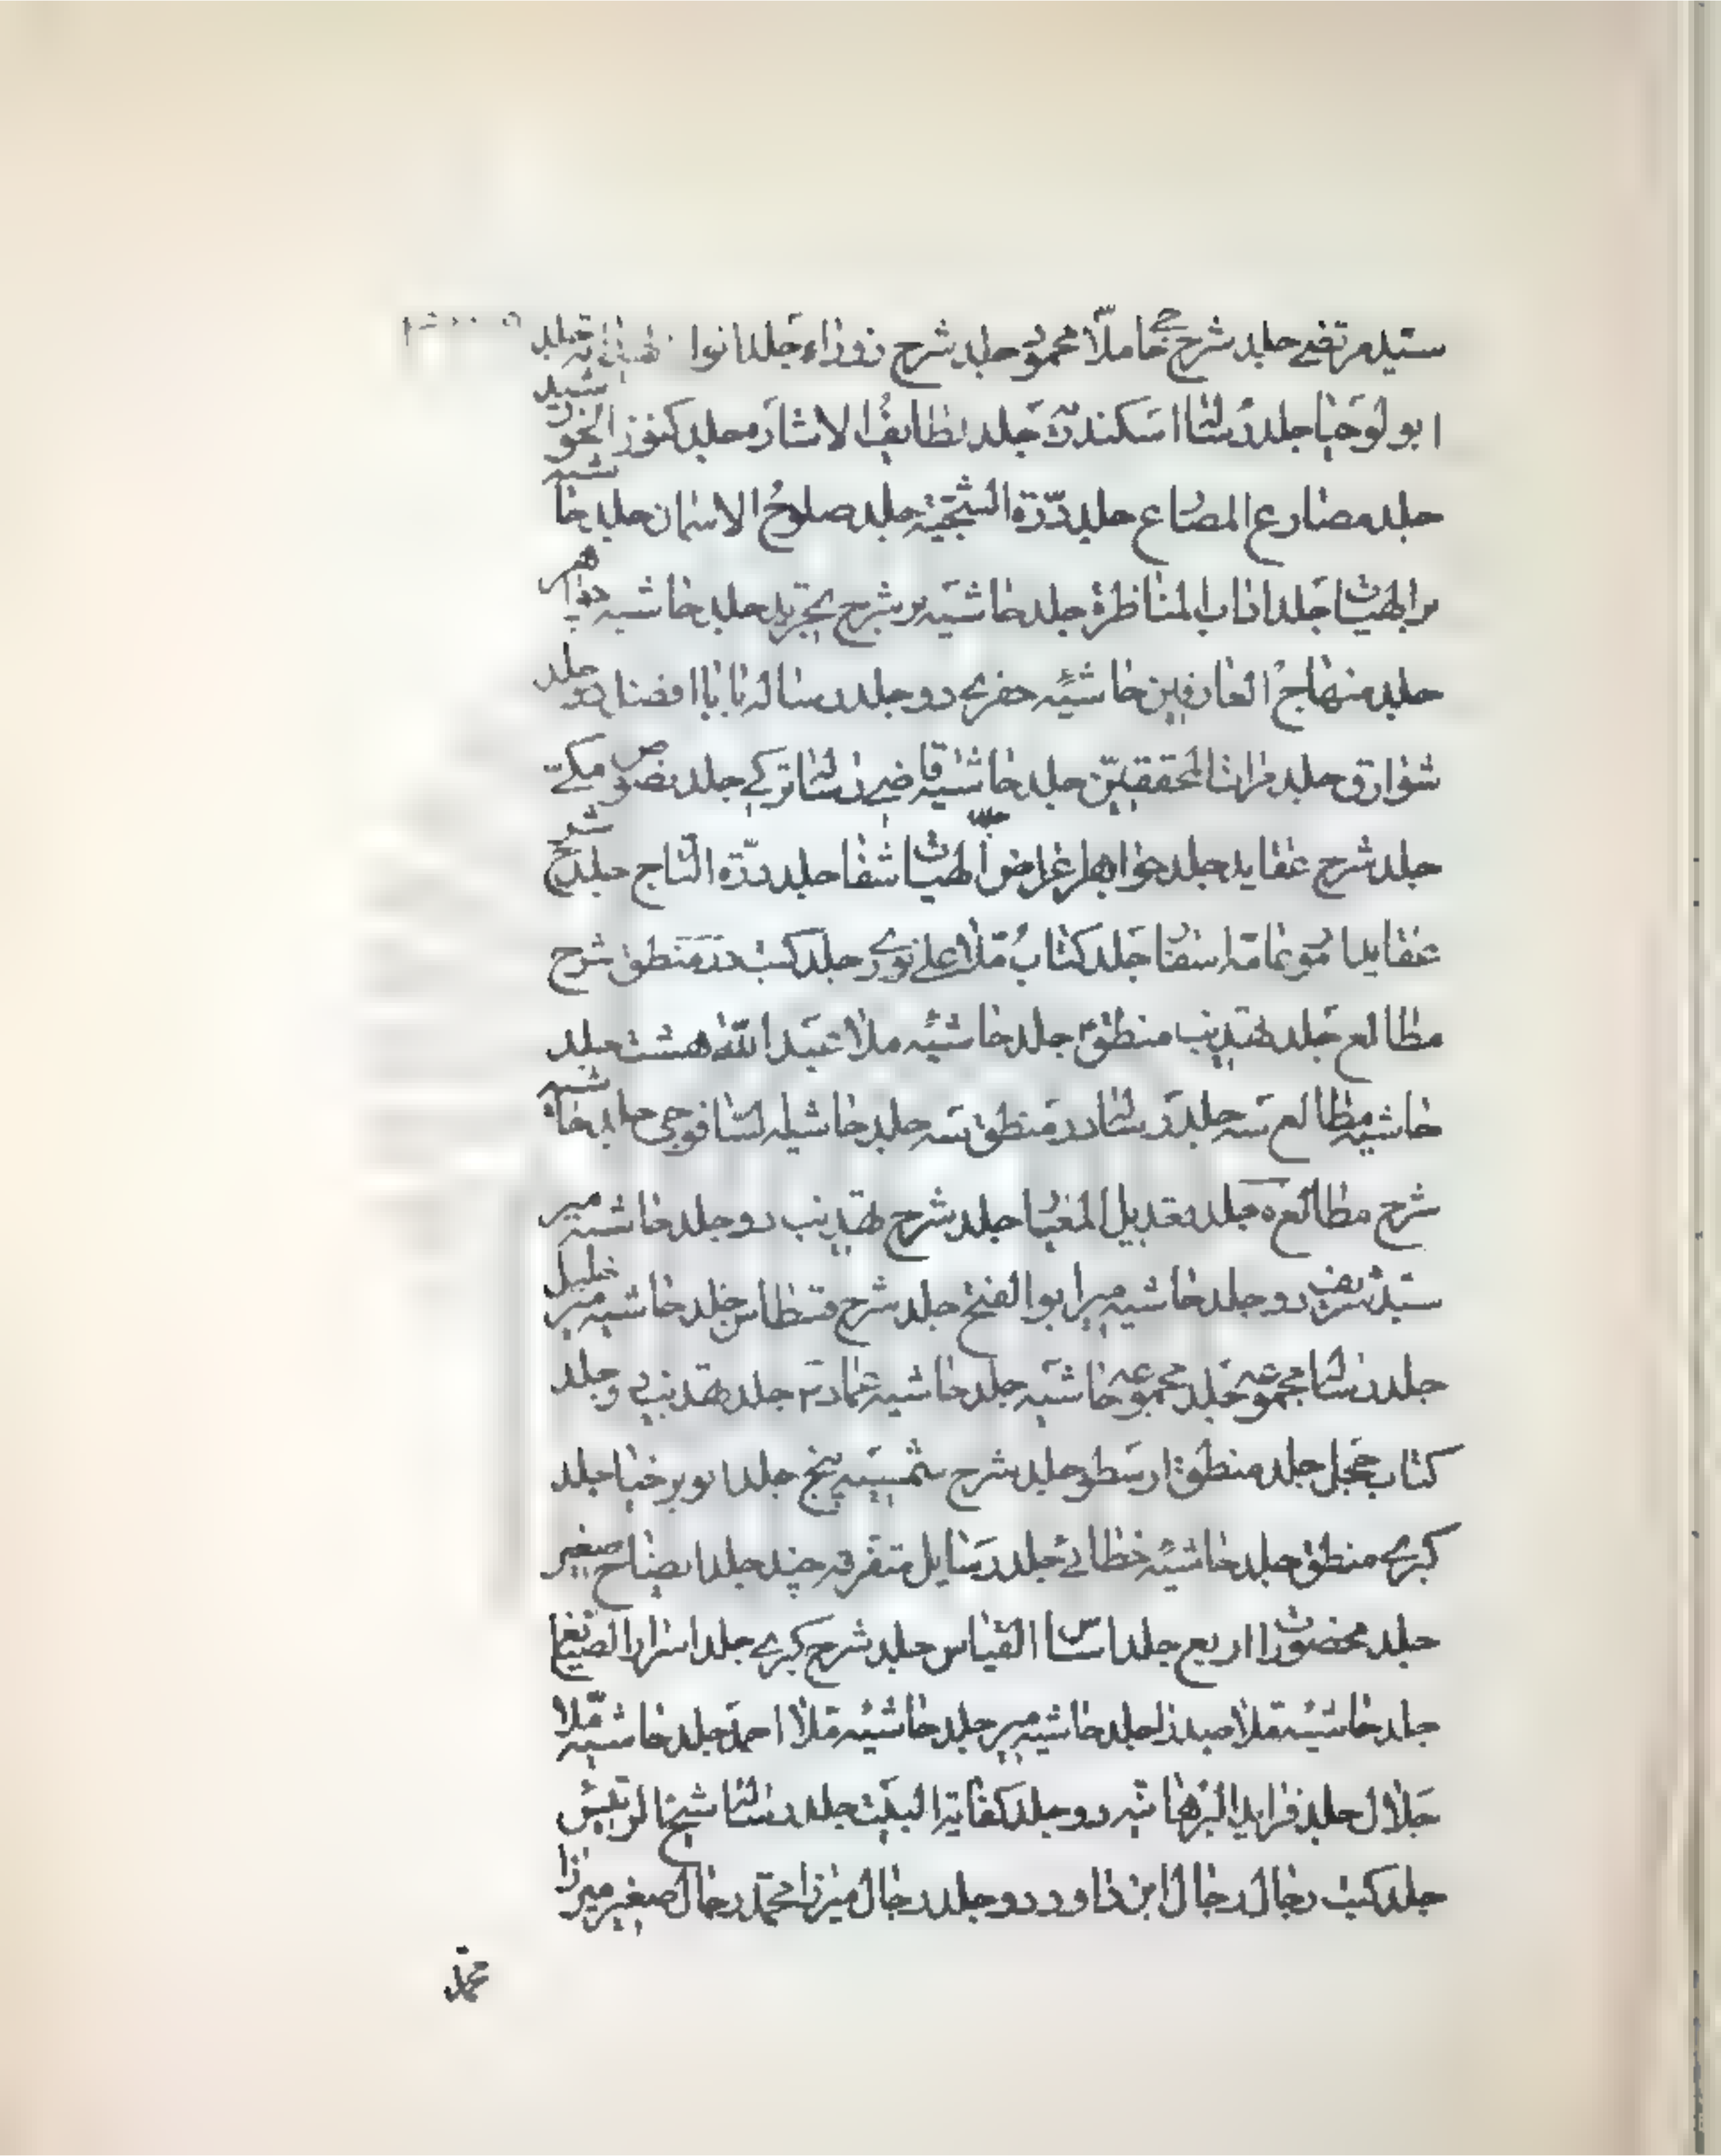 سید مرتضی جلد شرح حاجی ملا محمود جلد شرح زوراء جلد انوار جلد
ابو لوحیا جلد رسالت اسکندریه جلد لطایف الاشاره جلد کنوز النحو
جلد مصارع المصارع جلد درّة النجفیة جلد صلوح الاسمان جلد حاشیه
بر الهیات جلد اداب المناظرة جلد حاشیه بر شرح تجرید جلد حاشیه
جلد منهاج العارفین حاشیه خفری دو جلد رساله بابا افضل دو جلد
شوارق جلد مرات المحققین جلد حاشیه قاضی رسالت ترکی جلد نصوص مکی
جلد شرح عقاید جلد جواهر اغراض الهیات شفا جلد درّة التاج جلد شرح
عقاید امور عامه اسفار جلد کتاب ملا علی نوری جلد کتب در منطق شرح
مطالع جلد تهذیب منطق جلد حاشیه ملا عبد الله هشت جلد
حاشیه مطالع سه جلد رسالت در منطق سه جلد حاشیه قوجی جلد حاشیه
شرح مطالع جلد تعدیل المعیار جلد شرح تهذیب دو جلد حاشیه میر
سید شریف دو جلد حاشیه میر ابو الفتح جلد شرح قسطاس جلد حاشیه میر خلیل
جلد رسالت مجموعه جلد مجموعه حاشیه جلد حاشیه عمادیه جلد تهذیب دو جلد
کتاب جلد منطق ارسطو جلد شرح شمسیه پنج جلد جلد
کبری منطق جلد حاشیه خطائی جلد رسایل متفرقه چند جلد ایضاح صغیر
جلد محصورات اربع جلد اساس القیاس جلد شرح کبری جلد اسرار الصنیع
جلد حاشیه ملا صدرا جلد حاشیه میر جلد حاشیه ملا احمد جلد حاشیه ملا
جلال جلد فراید البرهانیه دو جلد کفایة جلد رسالت شیخ الرئیس
جلد کتب رجال رجال ابن داود دو جلد رجال میرزا محمد رجال صغیر میرزا
محمد